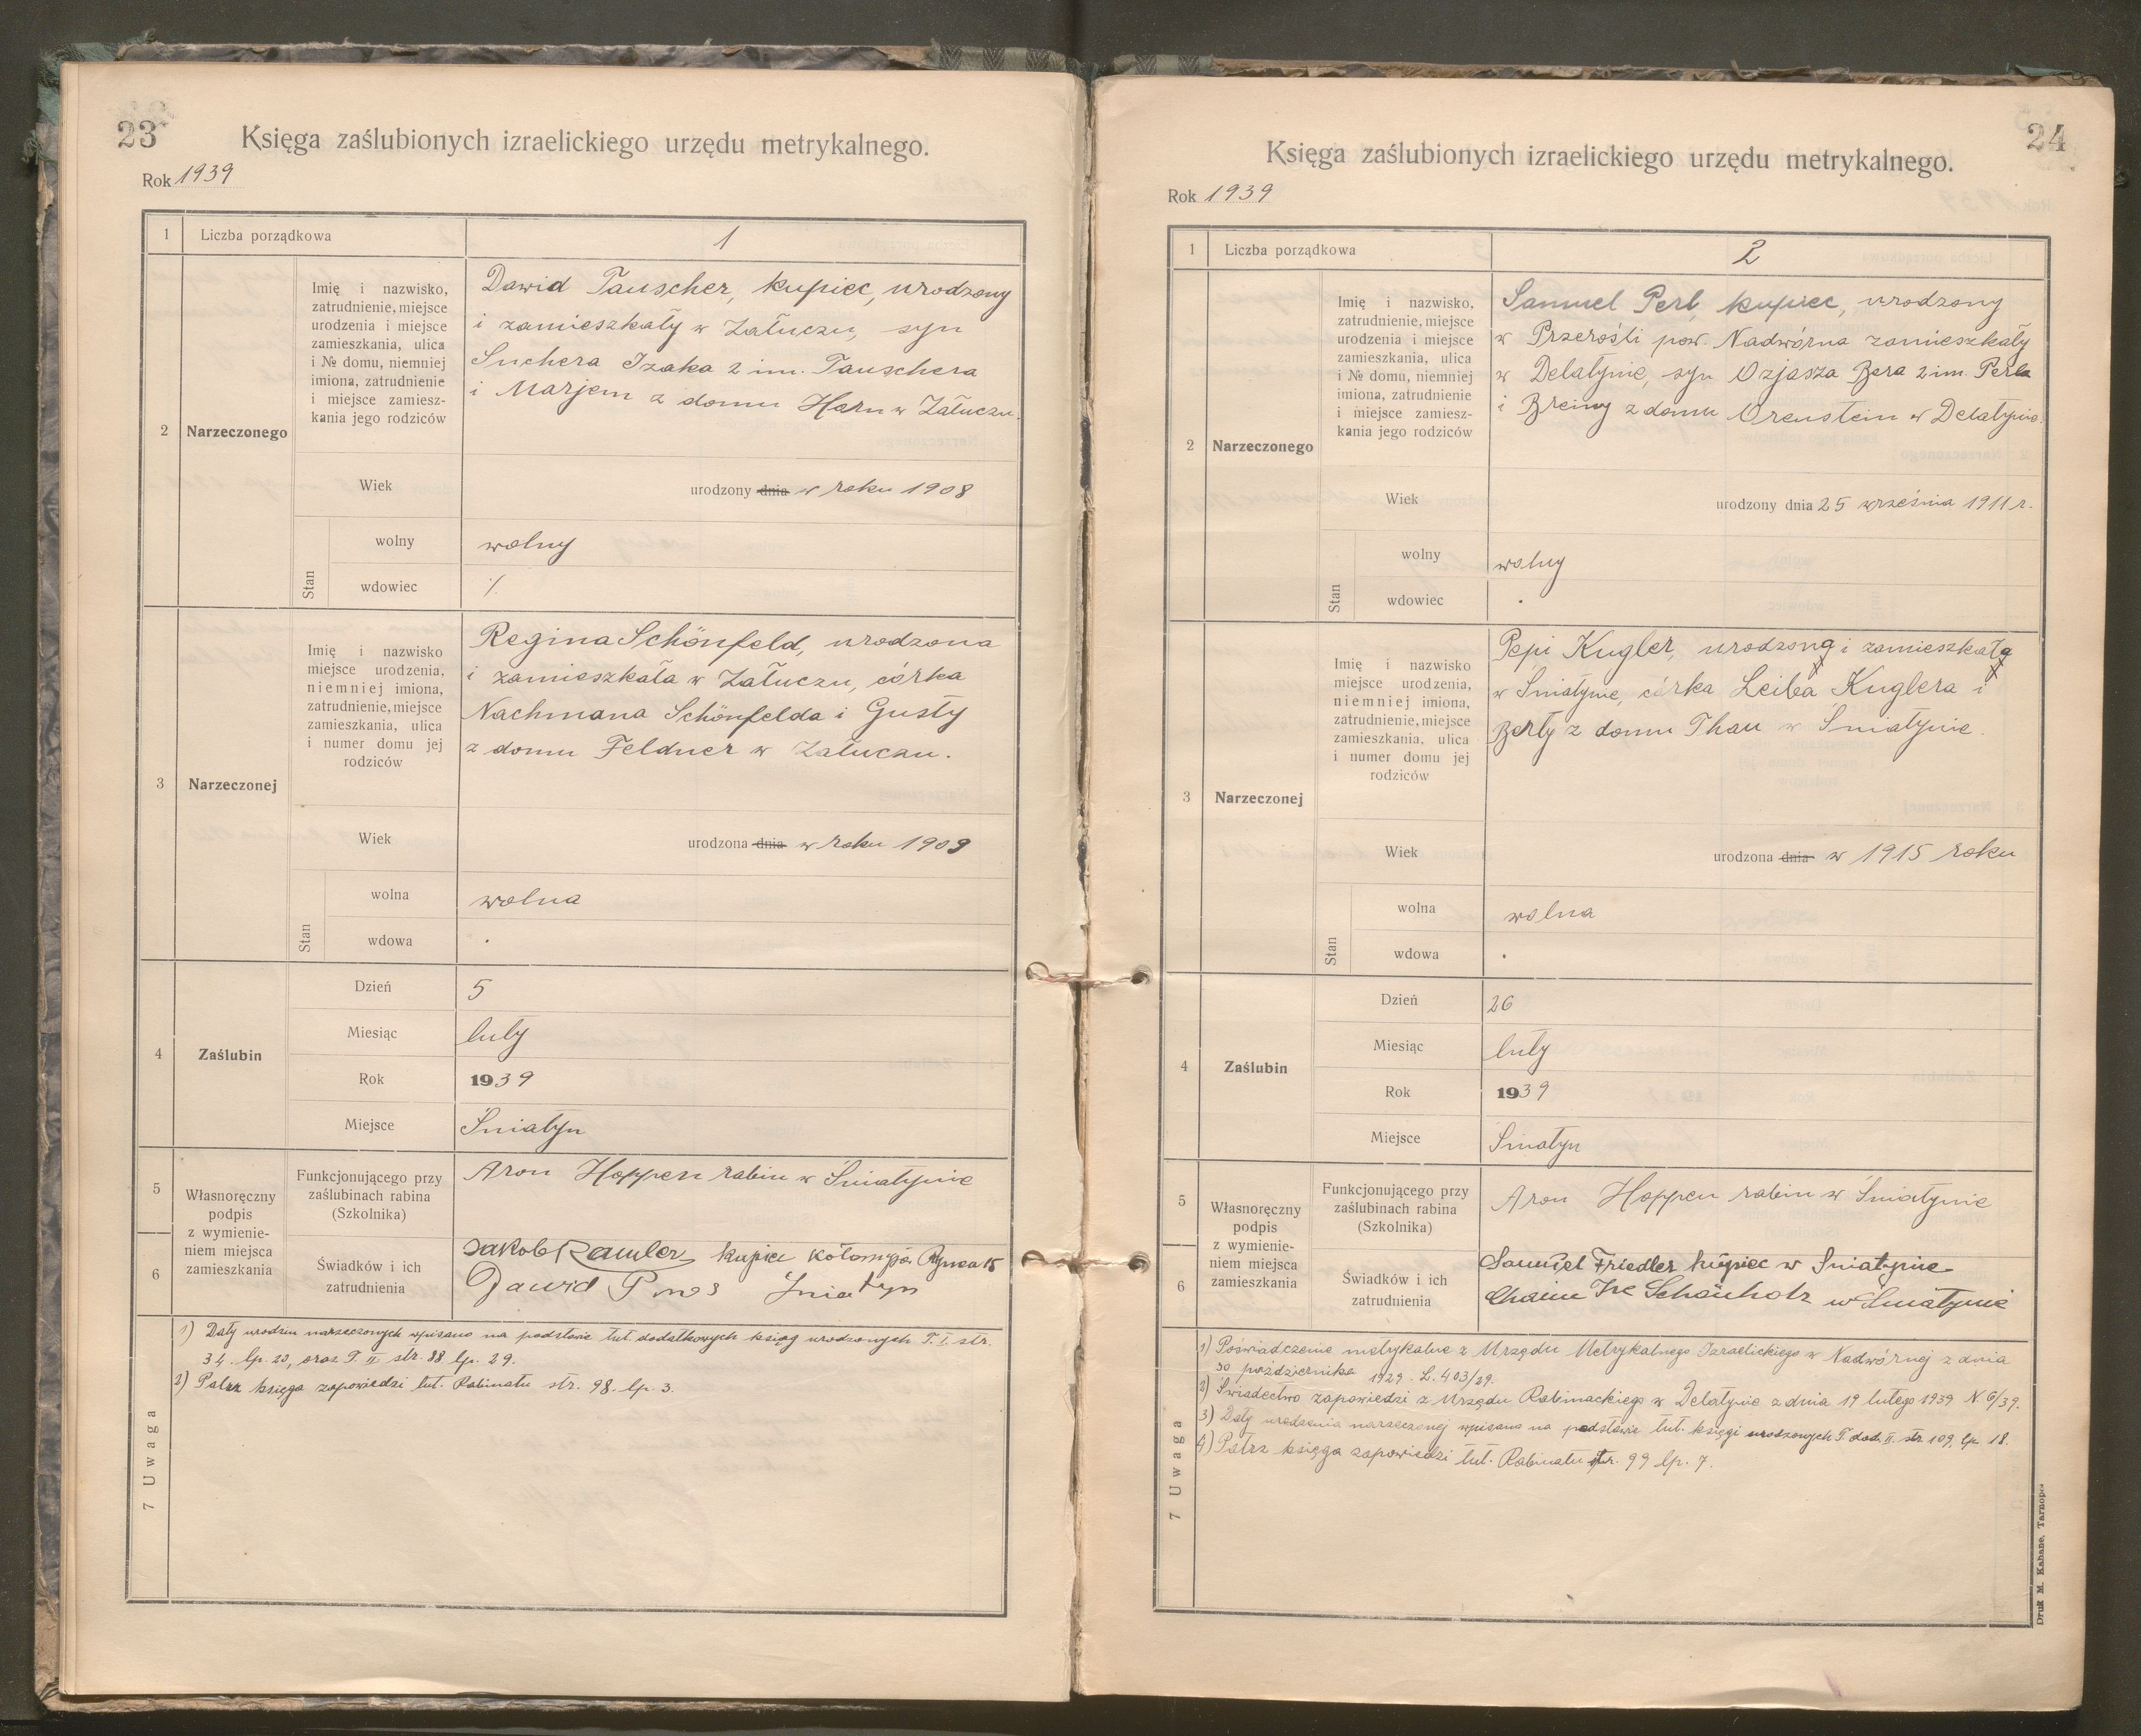 23
Księga zaślubionych izraelickiego urzędu metrykalnego.
Rok 1939
1 Liczba porządkowa 1
2 Narzeczonego
Imię i nazwisko,
zatrudnienie, miejsce
urodzenia i miejsce
zamieszkania, ulica
i № domu, niemniej
imiona, zatrudnienie
i miejsce zamiesz-
kania jego rodziców
Dawid Tauscher, kupiec, urodzony
i zamieszkały w Załuczu, syn
Suchera Izaka 2 im. Tauschera
i Marjem z domu Horn w Załuczu.
Wiek urodzony dnia w roku 1908
Stan
wolny wolny
wdowiec /.
3 Narzeczonej
Imię i nazwisko
miejsce urodzenia,
niemniej imiona,
zatrudnienie, miejsce
zamieszkania, ulica
i numer domu jej
rodziców
Regina Schönfeld, urodzona
i zamieszkała w Załuczu, córka
Nachmana Schönfelda i Gusty
z domu Feldner w Załuczu.
Wiek urodzona dnia w roku 1909
Stan
wolna wolna
wdowa .
4 Zaślubin
Dzień 5
Miesiąc luty
Rok 1939
Miejsce Śniatyn
5
6
Własnoręczny
podpis
z wymienie-
niem miejsca
zamieszkania
Funkcjonującego przy
zaślubinach rabina
(Szkolnika)
Aron Hoppen rabin w Śniatynie
Świadków i ich
zatrudnienia
Jakob Ramler kupiec Kołomyja Rynek 15
Dawid Śniatyn
7 Uwaga
1) Daty urodzin narzeczonych wpisano na podstawie tut. dodatkowych ksiąg urodzonych T. I. str.
34. lp. 20, oraz T. II str. 88 lp. 29.
2) Patrz księga zapowiedzi tut. Rabinatu str. 98. lp. 3.
24
Księga zaślubionych izraelickiego urzędu metrykalnego.
Rok 1939
1 Liczba porządkowa 2
2 Narzeczonego
Imię i nazwisko,
zatrudnienie, miejsce
urodzenia i miejsce
zamieszkania, ulica
i № domu, niemniej
imiona, zatrudnienie
i miejsce zamiesz-
kania jego rodziców
Samuel Perl, kupiec, urodzony
w Przerośli pow. Nadwórna zamieszkały
w Delatynie, syn Ozjasza Bera 2 im. Perla
i Breiny z domu Orenstein w Delatynie.
Wiek urodzony dnia 25 września 1911 r.
Stan
wolny wolny
wdowiec .
3 Narzeczonej
Imię i nazwisko
miejsce urodzenia,
niemniej imiona,
zatrudnienie, miejsce
zamieszkania, ulica
i numer domu jej
rodziców
Pepi Kugler, urodzona i zamieszkała
w Śniatynie, córka Leiba Kuglera i
Berty z domu Thau w Śniatynie.
Wiek urodzona dnia w 1915 roku
Stan
wolna wolna
wdowa .
4 Zaślubin
Dzień 26
Miesiąc luty
Rok 1939
Miejsce Śniatyn
5
6
Własnoręczny
podpis
z wymienie-
niem miejsca
zamieszkania
Funkcjonującego przy
zaślubinach rabina
(Szkolnika)
Aron Hoppen rabin w Śniatynie
Świadków i ich
zatrudnienia
Samuel Friedler kupiec w Śniatynie
Chaim Schönholz w Śniatynie
7 Uwaga
1) Poświadczenie metrykalne z Urzędu Metrykalnego Izraelickiego w Nadwórnej z dnia
30 października 1929. L. 403/29.
2) Świadectwo zapowiedzi z Urzędu Rabinackiego w Delatynie z dnia 19 lutego 1939 N. 6/39.
3) Daty urodzenia narzeczonej wpisano na podstawie tut. księgi urodzonych T. dod. II. str. 109, lp. 18.
4) Patrz księga zapowiedzi tut. Rabinatu str. 99 lp. 7.
Druk M. Kahane, Tarnopol